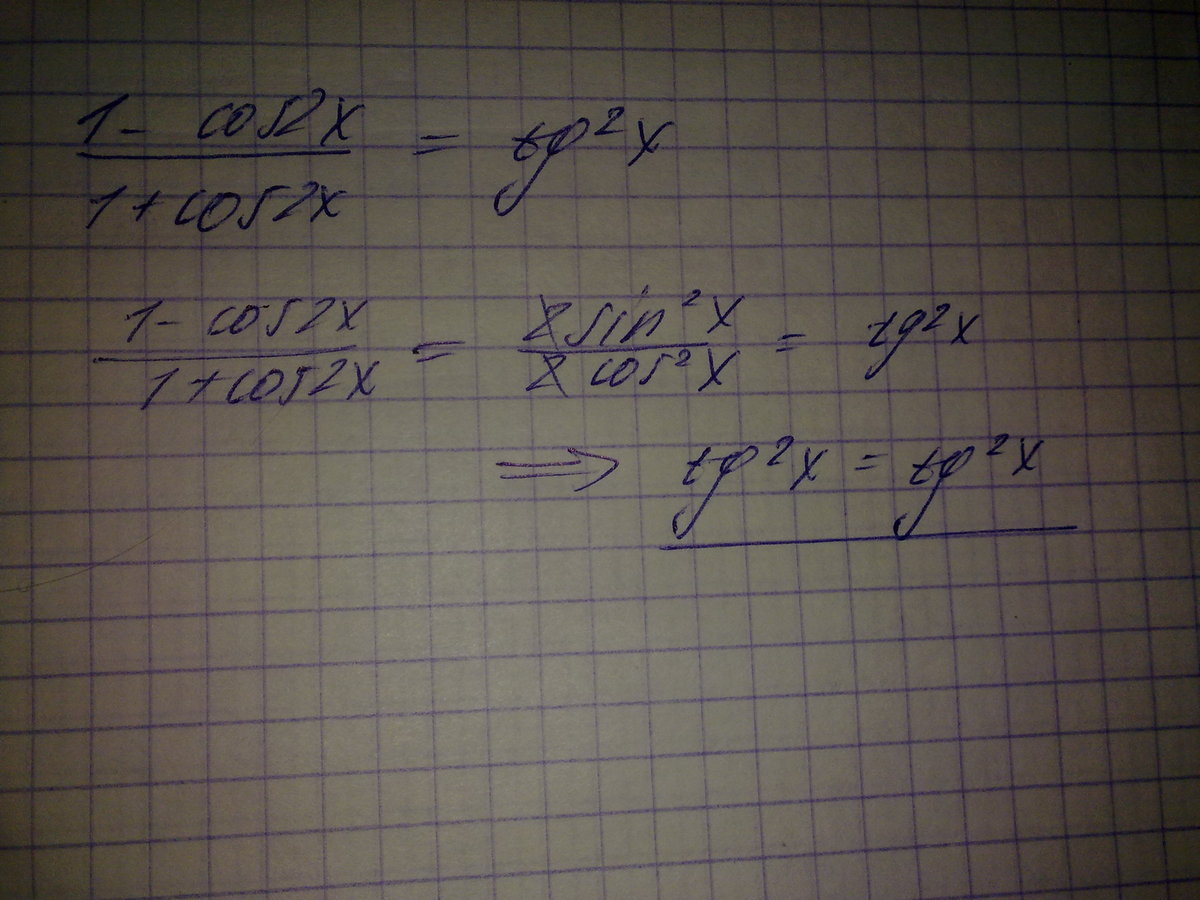 1 - cos2x / 1 + cos2x = tg²x
1 - cos2x / 1 + cos2x = 2 sin²x / 2 cos²x = tg²x
⇒ tg²x = tg²x